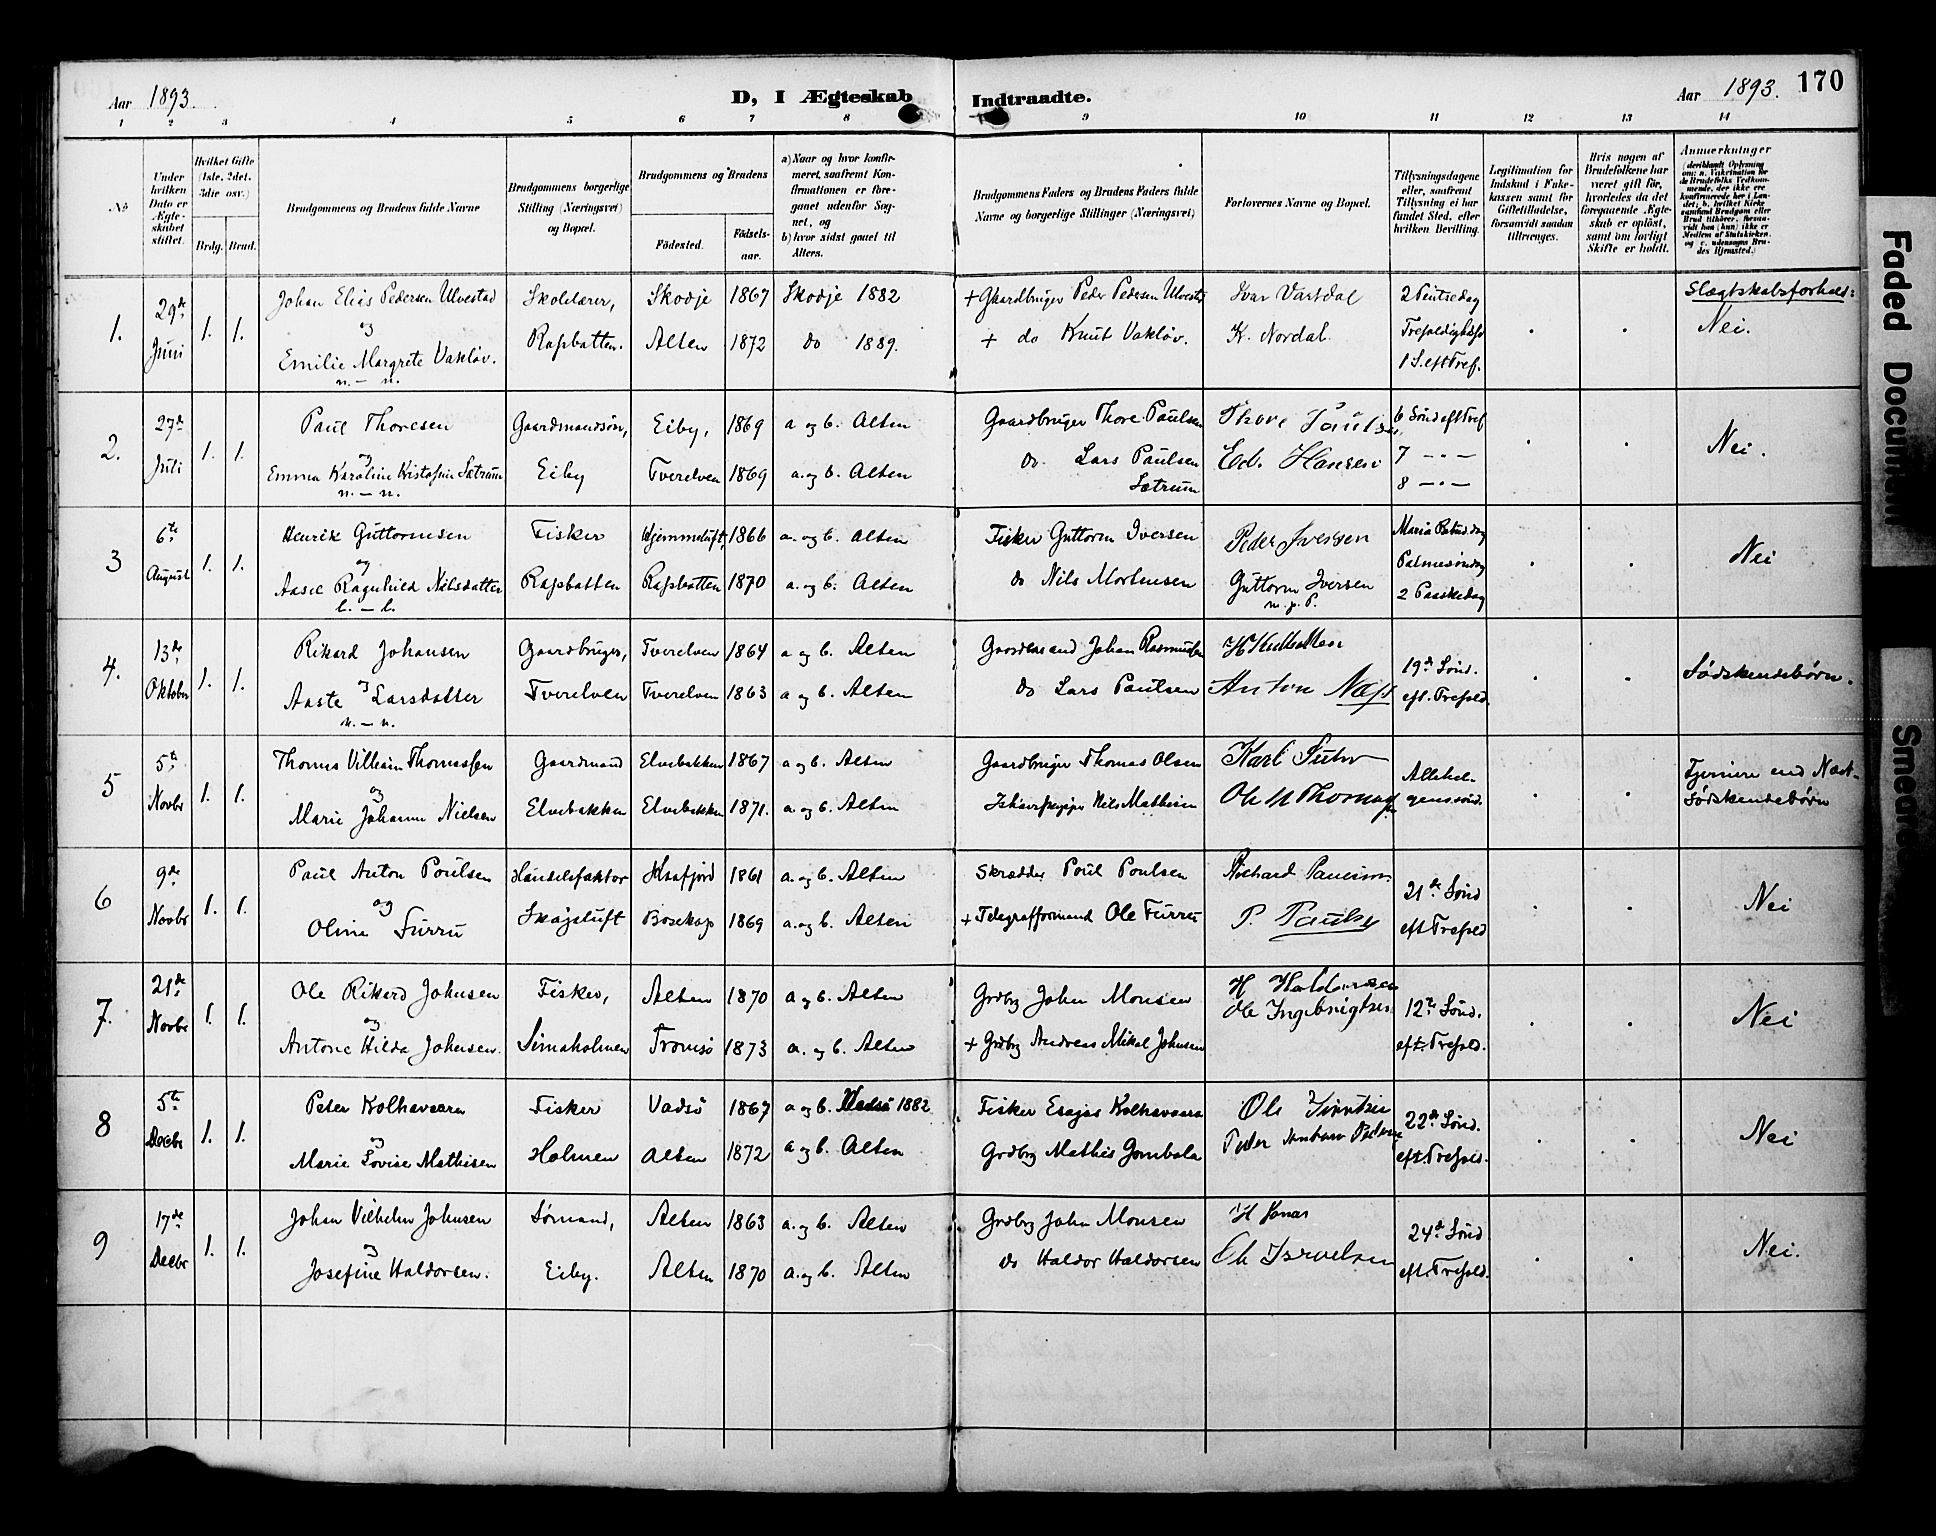 Aar 1893.
D, I Ægteskab Indtraadte.
Aar 1893. 170
1 2 3 4 5 6 7 8 9 10 11 12 13 14
No
Under hvilken Dato er Ægteskabet stiftet.
Hvilket Gifte (1ste, 2det, 3die osv.)
Brdg. Brud.
Brudgommens og Brudens fulde Navne
Brudgommens borgerlige Stilling (Næringsvei) og Bopæl.
Brudgommens og Brudens
Fødested.
Fødselsaar.
a) Naar og hvor konfirmeret, saafremt Konfirmationen er foregaaet udenfor Sognet, og
b) hvor sidst gaaet til Alters.
Brudgommens Faders og Brudens Faders fulde Navne og borgerlige Stillinger (Næringsvei)
Forlovernes Navne og Bopæl.
Tillysningsdagene eller, saafremt Tillysning ei har fundet Sted, efter hvilken Bevilling.
Legitimation for Indskud i Fakekassen samt for Giftetilladelse, forsaavidt saadan tiltrænges.
Hvis nogen af Brudefolkene har været gift før, hvorledes da det foregaaende Ægteskab er opløst, samt om lovligt Skifte er holdt.
Anmærkninger
(deriblandt Oplysning om: a. Vakcination for de Brudefolks Vedkommende, der ikke ere konfirmerede her i Landet; b. hvilket Kirkesamfund Brudgom eller Brud tilhører, forsaavidt han (hun) ikke er Medlem af Statskirken, og c. udensogns Brudes Hjemsted.)
1. 29de Juni 1. 1.
Johan Elias Pedersen Ulvestad
og
Emilie Margrete Vakløv.
n. — n.
Skolelærer,
Rafsbotten.
Skodje 1867 Skodje 1882
Alten 1872 do 1889.
+ Gaardbruger Peder Pedersen Ulvestad
+ do Knut Vakløv.
Ivar Vartdal
K. Nordal.
2 Pintsedag
Trefoldighedsf
1 S. eft Tref.
Slægtskabsforhold:
Nei.
2. 27de Juli 1. 1.
Paul Thoresen
og
Emma Karoline Kristofine Sætrum
n. — n.
Gaardmandsøn,
Eiby
Eiby, 1869 a og b. Alten
Tverelven 1869 a. og b. Alten
Gaardbruger Thore Paulsen
do. Lars Paulsen
Sætrum
Thore Paulsen
Ed. Hansen
6 Sønd eft Tref
7 — " —
8 — " —
Nei.
3 6te August 1. 1.
Henrik Guttormsen
og
Aasel Ragnhild Nilsdatter
l. — l.
Fisker
Rafsbotten
Hjemmeluft, 1866 a. og b. Alten
Rafsbotten 1870 a. og b. Alten
Fisker Guttorm Iversen
do Nils Mortensen
Peder Iversen
Guttorm Iversen
m. p. P.
Maria Bebud.dag
Palmesøndag
2 Paaskedag
Nei
4. 13de Oktober 1. 1.
Rikard Johansen
og
Aaste Larsdatter
n. — n.
Gaardbruger,
Tverelven
Tverelven 1864 a og b. Alten
Tverelven 1863 a og b. Alten
Gaardmand Johan Rasmussen
do Lars Paulsen
Anton Næss
19de Sønd.
eft. Trefold.
Sødskendebørn.
5 5te Novbr 1. 1.
Thomas Vilhelm Thomassen
og
Marie Johanne Nielsen
Gaardmand
Elvebakken
Elvebakken 1867 a og b. Alten
Elvebakken 1871. a og b. Alten
Gaardbruger Thomas Olsen
Nils Mathisen
Karl Suhr
Ole M Thomassen
Allehelgenssønd.
Fjernere end Næst-
sødskendebørn
6 9de Novbr 1. 1.
Paul Anton Poulsen
og
Oline Furru
Handelsfaktor
Skogsluft
Kaafjord 1861 a. og b. Alten
Bosekop 1869 a. og b. Alten
Skrædder Poul Poulsen
+ Telegrafformand Ole Furru
P. Paulsen
21de Sønd
eft Trefold
Nei
7. 21de Novbr 1. 1.
Ole Rikard Johnsen
og
Antone Hilda Johnsen.
Fisker,
Simaholmen
Alten 1870 a og b. Alten
Tromsø 1873 a. og b. Alten
Grdbrg John Monsen
+ Grdbrg Andreas Mikal Johnsen
H Haldorsen
Ole Ingebrigtsen
12te Sønd.
eft. Trefold.
Nei
8 5te Decbr 1. 1.
Peter Kolhavaara
og
Marie Lovise Mathisen
Fisker
Holmen
Vadsø 1867 a og b. Vadsø 1882
Alten 1872 a og b. Alten
Fisker Esajas Kolhavaara
Grdbrg Mathis Jombala
22de Sønd.
eft. Trefold.
Nei
9 17de Decbr 1. 1.
Johan Vilhelm Johnsen
og
Josefine Haldorsen.
Sømand,
Eiby.
Alten 1863 a. og b. Alten
Alten 1870 a. og b. Alten
Grdbrg John Monsen
do Haldor Haldorsen
Ole Israelsen
24de Sønd
eft. Trefold.
Nei.
Faded Document
Smeared